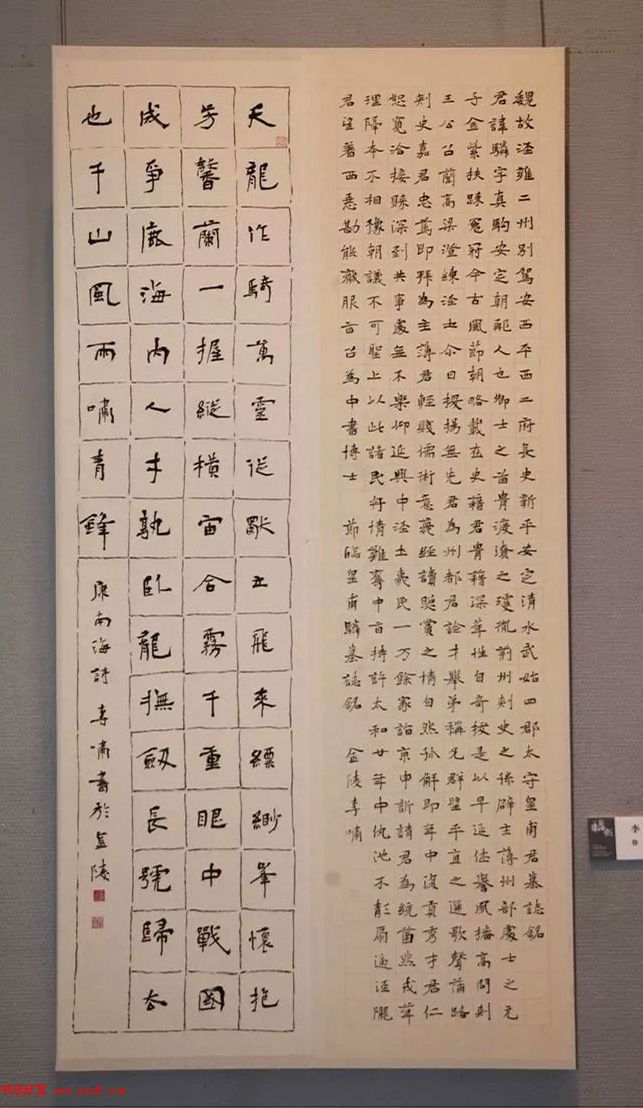 魏故涇雍二州別駕安西平西二府長史新平安定清水武始四郡太守皇甫君墓誌銘
君諱驎字真駒安定朝那人也卿士之苗貴渡瀆之瓊胤前州刺史之孫辟主薄州部處士之元
子金紫扶踈冤冠今古風節朝略載在史籍君貴籍深華性自奇桉是以早延佳譽風播高問刺
王公召蘭高梁澄練涇士僉曰授揚無先君為州都君詮才舉弟稱允群望平直之選歌聲滿路
刺史嘉君忠篤即拜為主薄君輕賤儒術意薄經讀聰賞之情自然孤解即年中復貢秀才君仁
恕寬洽接賖深到共事處無不樂仰延興中涇土夷民一万餘家詣京申訴請君為統酋然戎華
理隔本不相豫朝議不可聖上以此諸民好情難奪中旨特許太和廿年中仇池不彰扇逼涇隴
君望著西悳勘能厭服旨召為中書博士 節臨皇甫驎墓誌銘 金陵李嘯
天龍作騎萬靈從獸立飛來縹緲峯懷抱
芳馨蘭一握縱橫宙合霧千重眼中戰國
成爭鹿海內人才孰臥龍撫劔長號歸去
也千山風雨嘯青鋒
康南海詩 李嘯書於金陵